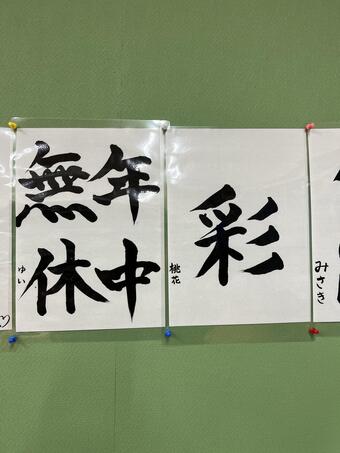 年中
無休
ゆい
彩
桃花
みさき